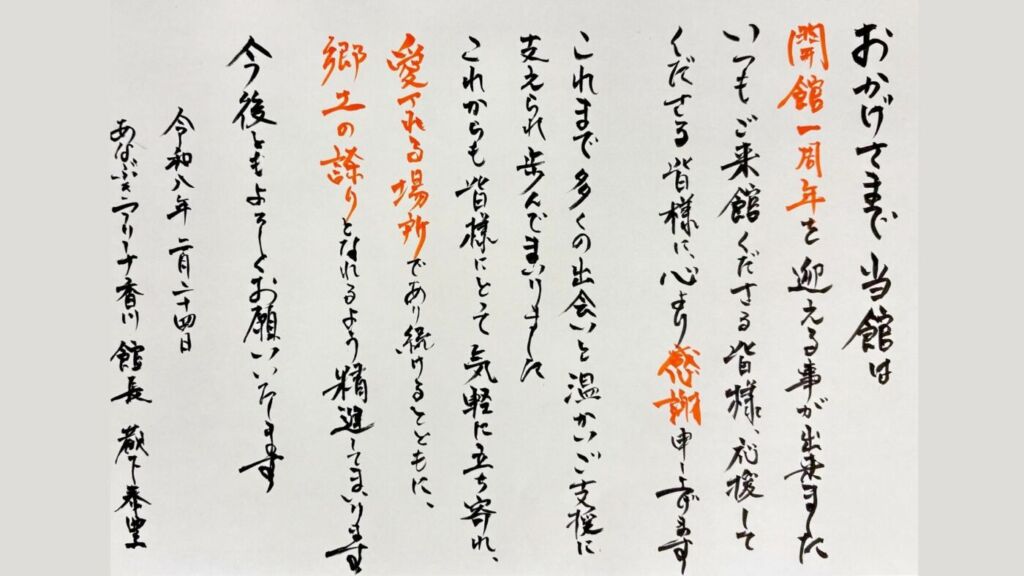 おかげさまで当館は
開館一周年を迎える事が出来ました
いつもご来館くださる皆様、応援して
くださる皆様に、心より感謝申し上げます
これまで多くの出会いと温かいご支援に
支えられ歩んでまいりました
これからも皆様にとって気軽に立ち寄れ、
愛される場所であり続けるとともに、
郷土の誇りとなれるよう精進してまいります
今後ともよろしくお願いいたします
令和八年二月二十四日
あなぶきアリーナ香川 館長 下泰